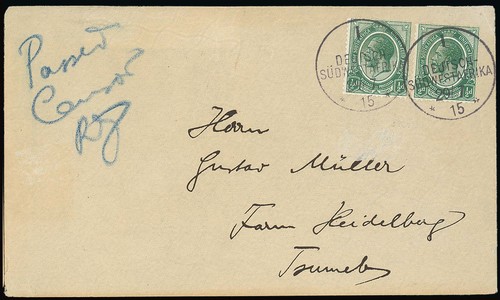 Passed
Censor
DEUTSCH-
SÜDWESTAFRIKA
15
½d
½d
DEUTSCH-
SÜDWESTAFRIKA
15
½d
½d
Herrn
Gustav Müller
Farm Heidelberg
Tsumeb